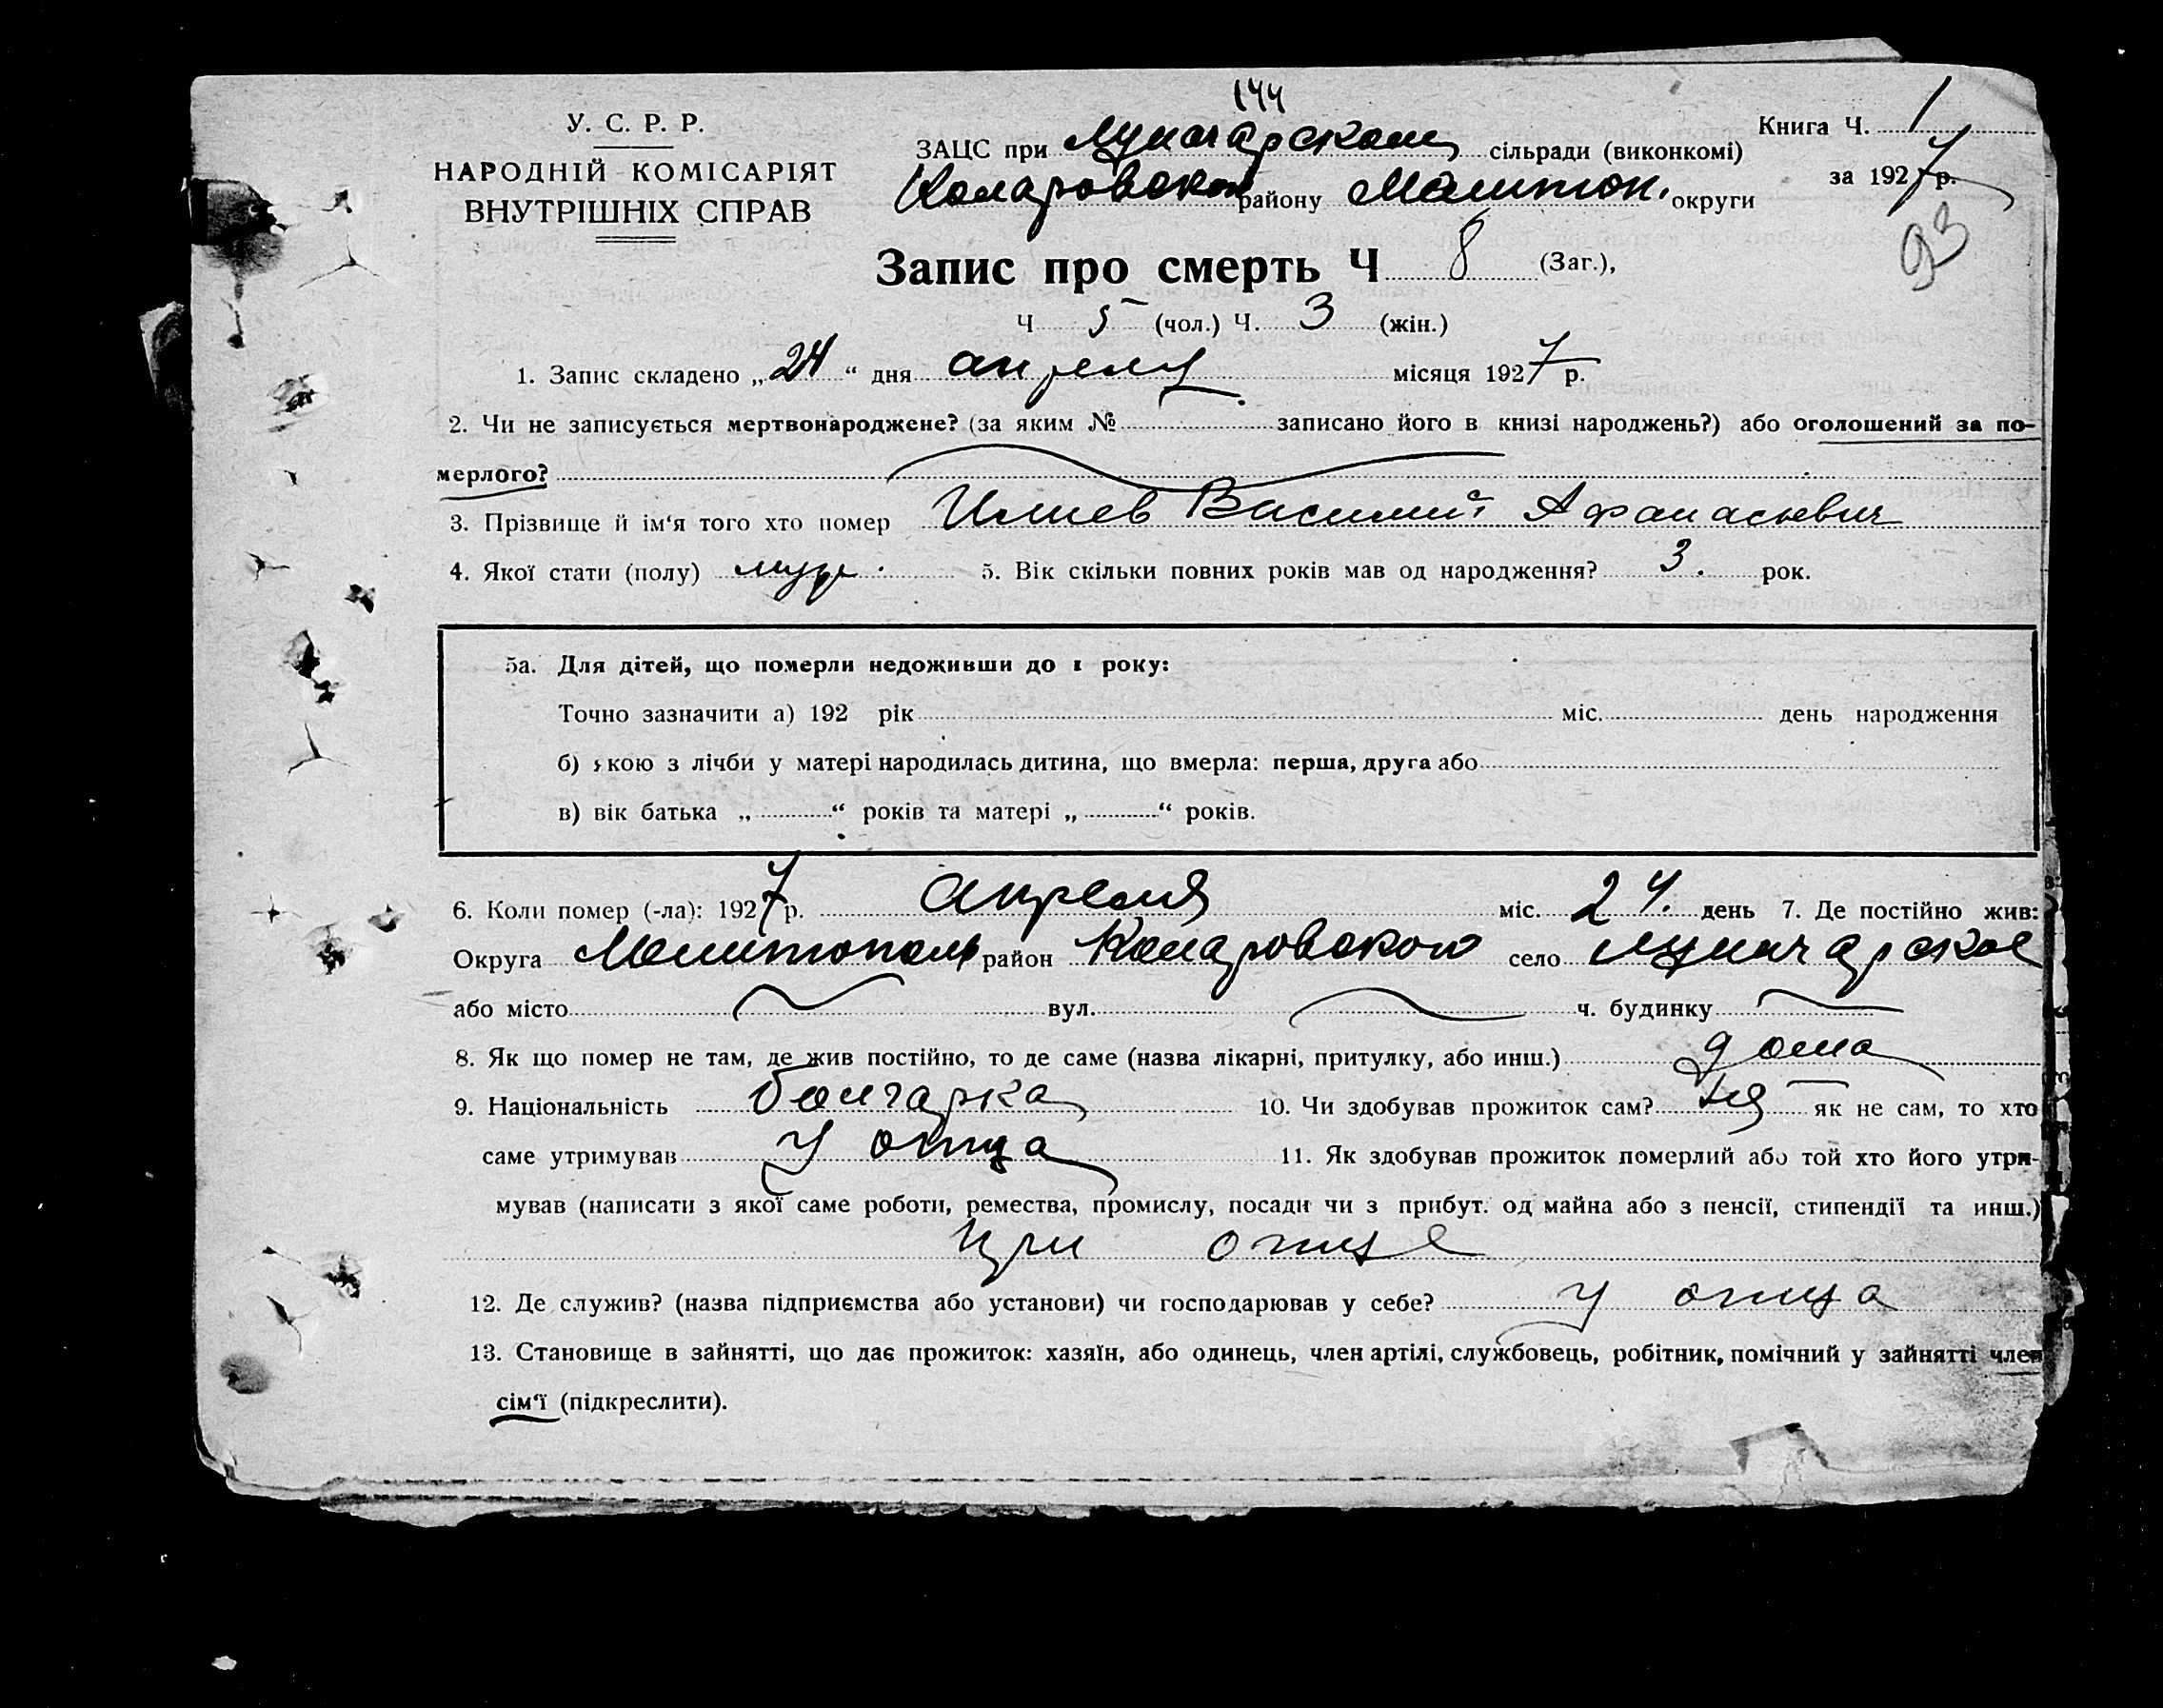 144
У. С. Р. Р.
НАРОДНІЙ КОМІСАРІЯТ
ВНУТРІШНІХ СПРАВ
ЗАЦС при Луначарском сільради (виконкомі)
Коларовском району Мелитоп. округи
Книга Ч. 1
за 1927 р.
93
Запис про смерть Ч 8 (Заг.),
Ч 5 (чол.) Ч. 3 (жін.)
1. Запис складено „24“ дня апреля місяця 1927 р.
2. Чи не записується мертвонароджене? (за яким № записано його в книзі народжень?) або оголошений за по-
мерлого?
3. Прізвище й ім‘я того хто помер Илиев Василий Афанасиевич
4. Якої стати (полу) муж. 5. Вік скільки повних років мав од народження? 3. рок.
5а. Для дітей, що померли недоживши до 1 року:
Точно зазначити а) 192 рік міс. день народження
б) якою з лічби у матері народилась дитина, що вмерла: перша, друга або
в) вік батька „ “ років та матері „ “ років.
6. Коли помер (-ла): 1927 р. апреля міс. 24. день 7. Де постійно жив:
Округа Мелитополь район Коларовского село Луначарское
або місто вул. ч. будинку
8. Як що помер не там, де жив постійно, то де саме (назва лікарні, притулку, або инш.) дома
9. Національність болгарка 10. Чи здобував прожиток сам? як не сам, то хто
саме утримував у отца 11. Як здобував прожиток померлий або той хто його утри-
мував (написати з якої саме роботи, ремества, промислу, посади чи з прибут. од майна або з пенсії, стипендії та инш.)
при отце
12. Де служив? (назва підприємства або установи) чи господарював у себе? у отца
13. Становище в зайнятті, що дає прожиток: хазяїн, або одинець, член артілі, службовець, робітник, помічний у зайнятті член
сім‘ї (підкреслити).